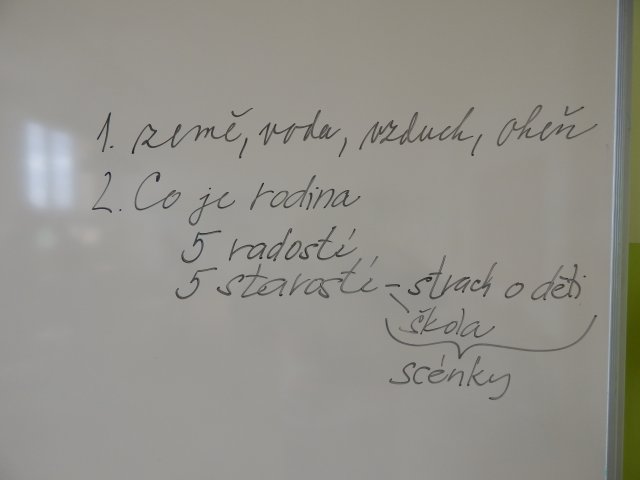 1. země, voda, vzduch, oheň
2. Co je rodina
5 radostí
5 starostí - strach o děti
škola
scénky